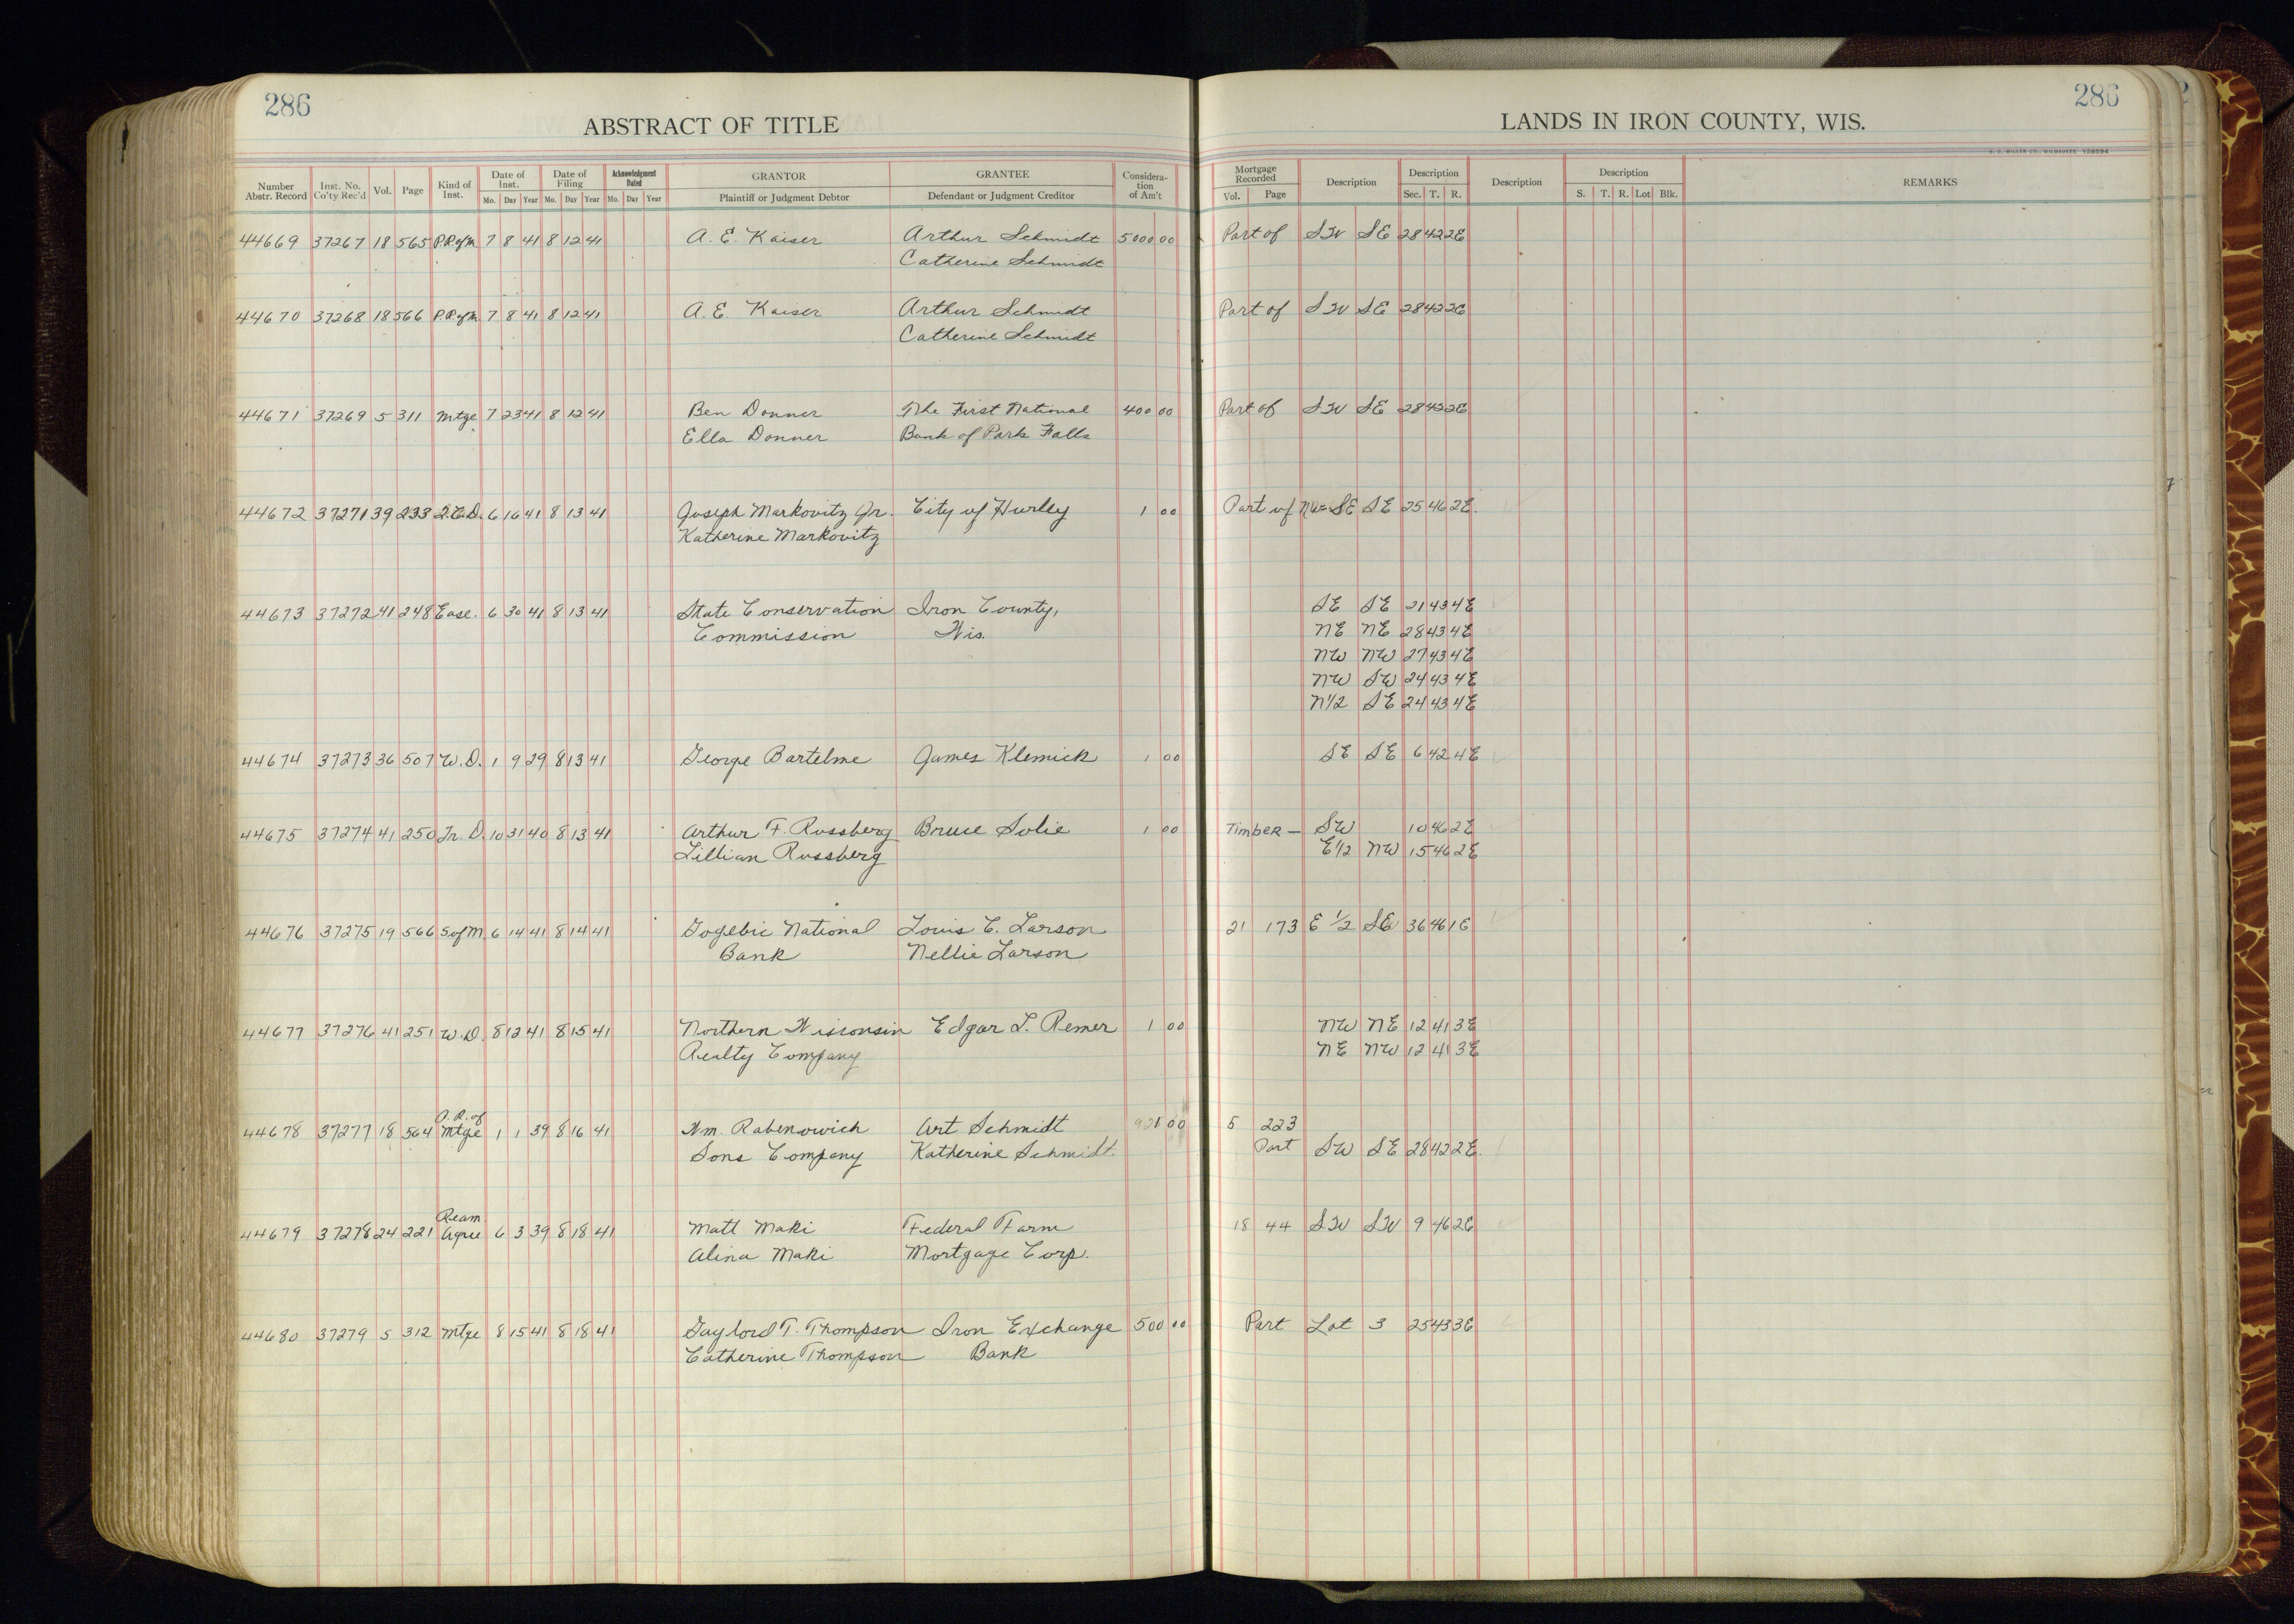 286
286
ABSTRACT OF TITLE
LANDS IN IRON COUNTY, WIS.
H. C. MILLER CO., MILWAUKEE Y28594
Number Abstr. Record Inst. No. Co'ty Rec'd Vol. Page Kind of Inst. Date of Inst. Mo. Day Year Date of Filing Mo. Day Year Acknowledgment Dated Mo. Day Year GRANTOR Plaintiff or Judgment Debtor GRANTEE Defendant or Judgment Creditor Considera-tion of Am't Mortgage Recorded Vol. Page Description Description Sec. T. R. Description Description S. T. R. Lot Blk. REMARKS
44669 37267 18 565 P.R. of M. 7 8 41 8 12 41 A. E. Kaiser Arthur Schmidt 5000 00 Part of SW SE 28 42 2E
Catherine Schmidt
44670 37268 18 566 P.R. of M. 7 8 41 8 12 41 A. E. Kaiser Arthur Schmidt Part of SW SE 28 42 2E
Catherine Schmidt
44671 37269 5 311 Mtge 7 23 41 8 12 41 Ben Donner The First National 400 00 Part of SW SE 28 42 2E
Ella Donner Bank of Park Falls
44672 37271 39 233 Q.C.D. 6 16 41 8 13 41 Joseph Markovitz Jr. City of Hurley 1 00 Part of NW SE SE 25 46 2E.
Katherine Markovitz
44673 37272 41 248 Ease. 6 30 41 8 13 41 State Conservation Iron County, SE SE 21 43 4E
Commission Wis. NE NE 28 43 4E
NW NW 27 43 4E
NW SW 24 43 4E
N1/2 SE 24 43 4E
44674 37273 36 507 W.D. 1 9 29 8 13 41 George Bartelme James Klemick 1 00 SE SE 6 42 4E
44675 37274 41 250 Tr. D. 10 31 40 8 13 41 Arthur F. Rossberg Bruce Solie 1 00 Timber — SW 10 46 2E
Lillian Rossberg E1/2 NW 15 46 2E
44676 37275 19 566 S of M. 6 14 41 8 14 41 Gogebic National Louis C. Larson 21 173 E 1/2 SE 36 46 1E
Bank Nellie Larson
44677 37276 41 251 W.D. 8 12 41 8 15 41 Northern Wisconsin Edgar L. Remer 1 00 NW NE 12 41 3E
Realty Company NE NW 12 41 3E
P. R. of
44678 37277 18 564 Mtge 1 1 39 8 16 41 Wm. Rabenowich Art Schmidt 921 00 5 223
Sons Company Katherine Schmidt. Part SW SE 28 42 2E.
Ream.
44679 37278 24 221 Agree 6 3 39 8 18 41 Matt Maki Federal Farm 18 44 SW SW 9 46 2E
Alina Maki Mortgage Corp.
44680 37279 5 312 Mtge 8 15 41 8 18 41 Gaylord T. Thompson Iron Exchange 500 00 Part Lot 3 25 43 3E
Catherine Thompson Bank